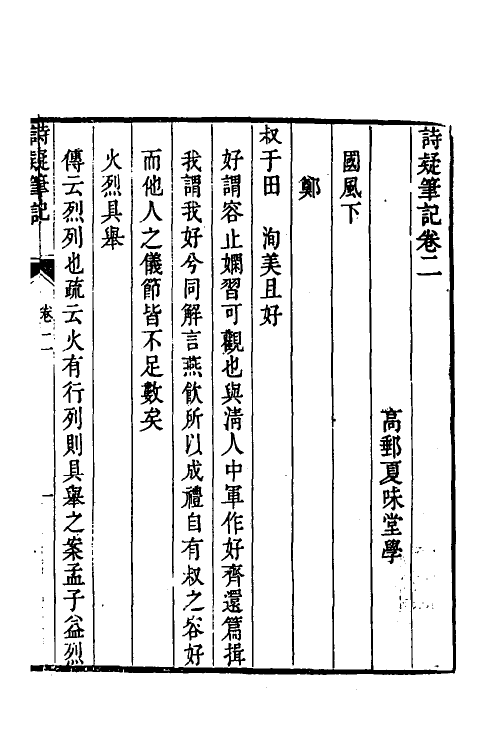 詩疑筆記卷二
高郵夏味堂學
國風下
鄭
叔于田　洵美且好
好謂容止嫻習可觀也與淸人中軍作好齊還篇揖
我謂我好兮同解言燕飮所以成禮自有叔之容好
而他人之儀節皆不足數矣
火烈具舉
傳云烈列也疏云火有行列則具舉之案孟子益烈
詩疑筆記
卷二
一